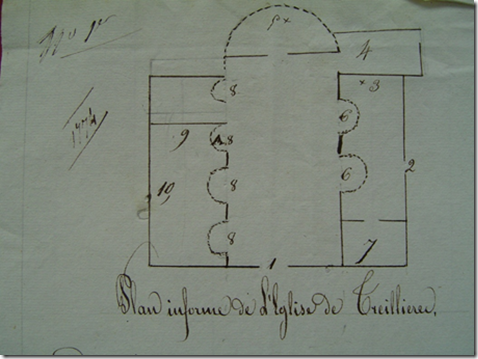 5 x
4
x 3
8
6
1774
9
8
2
10,
8
6
8
7
1
Plan informe de L'Eglise de Treillieres,